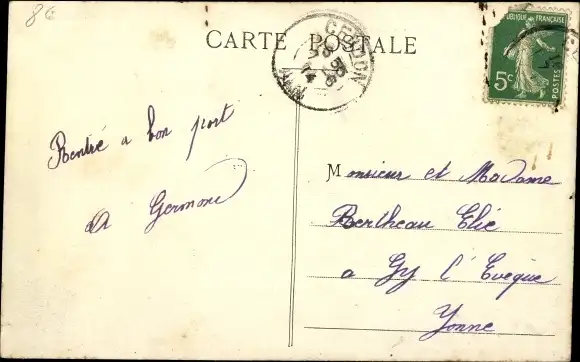 86
CARTE POSTALE
RÉPUBLIQUE FRANÇAISE
5c
POSTES
Rentré a bon port
Germond
Monsieur et Madame
Bertheau Elie
a Gy l'Eveque
Yonne